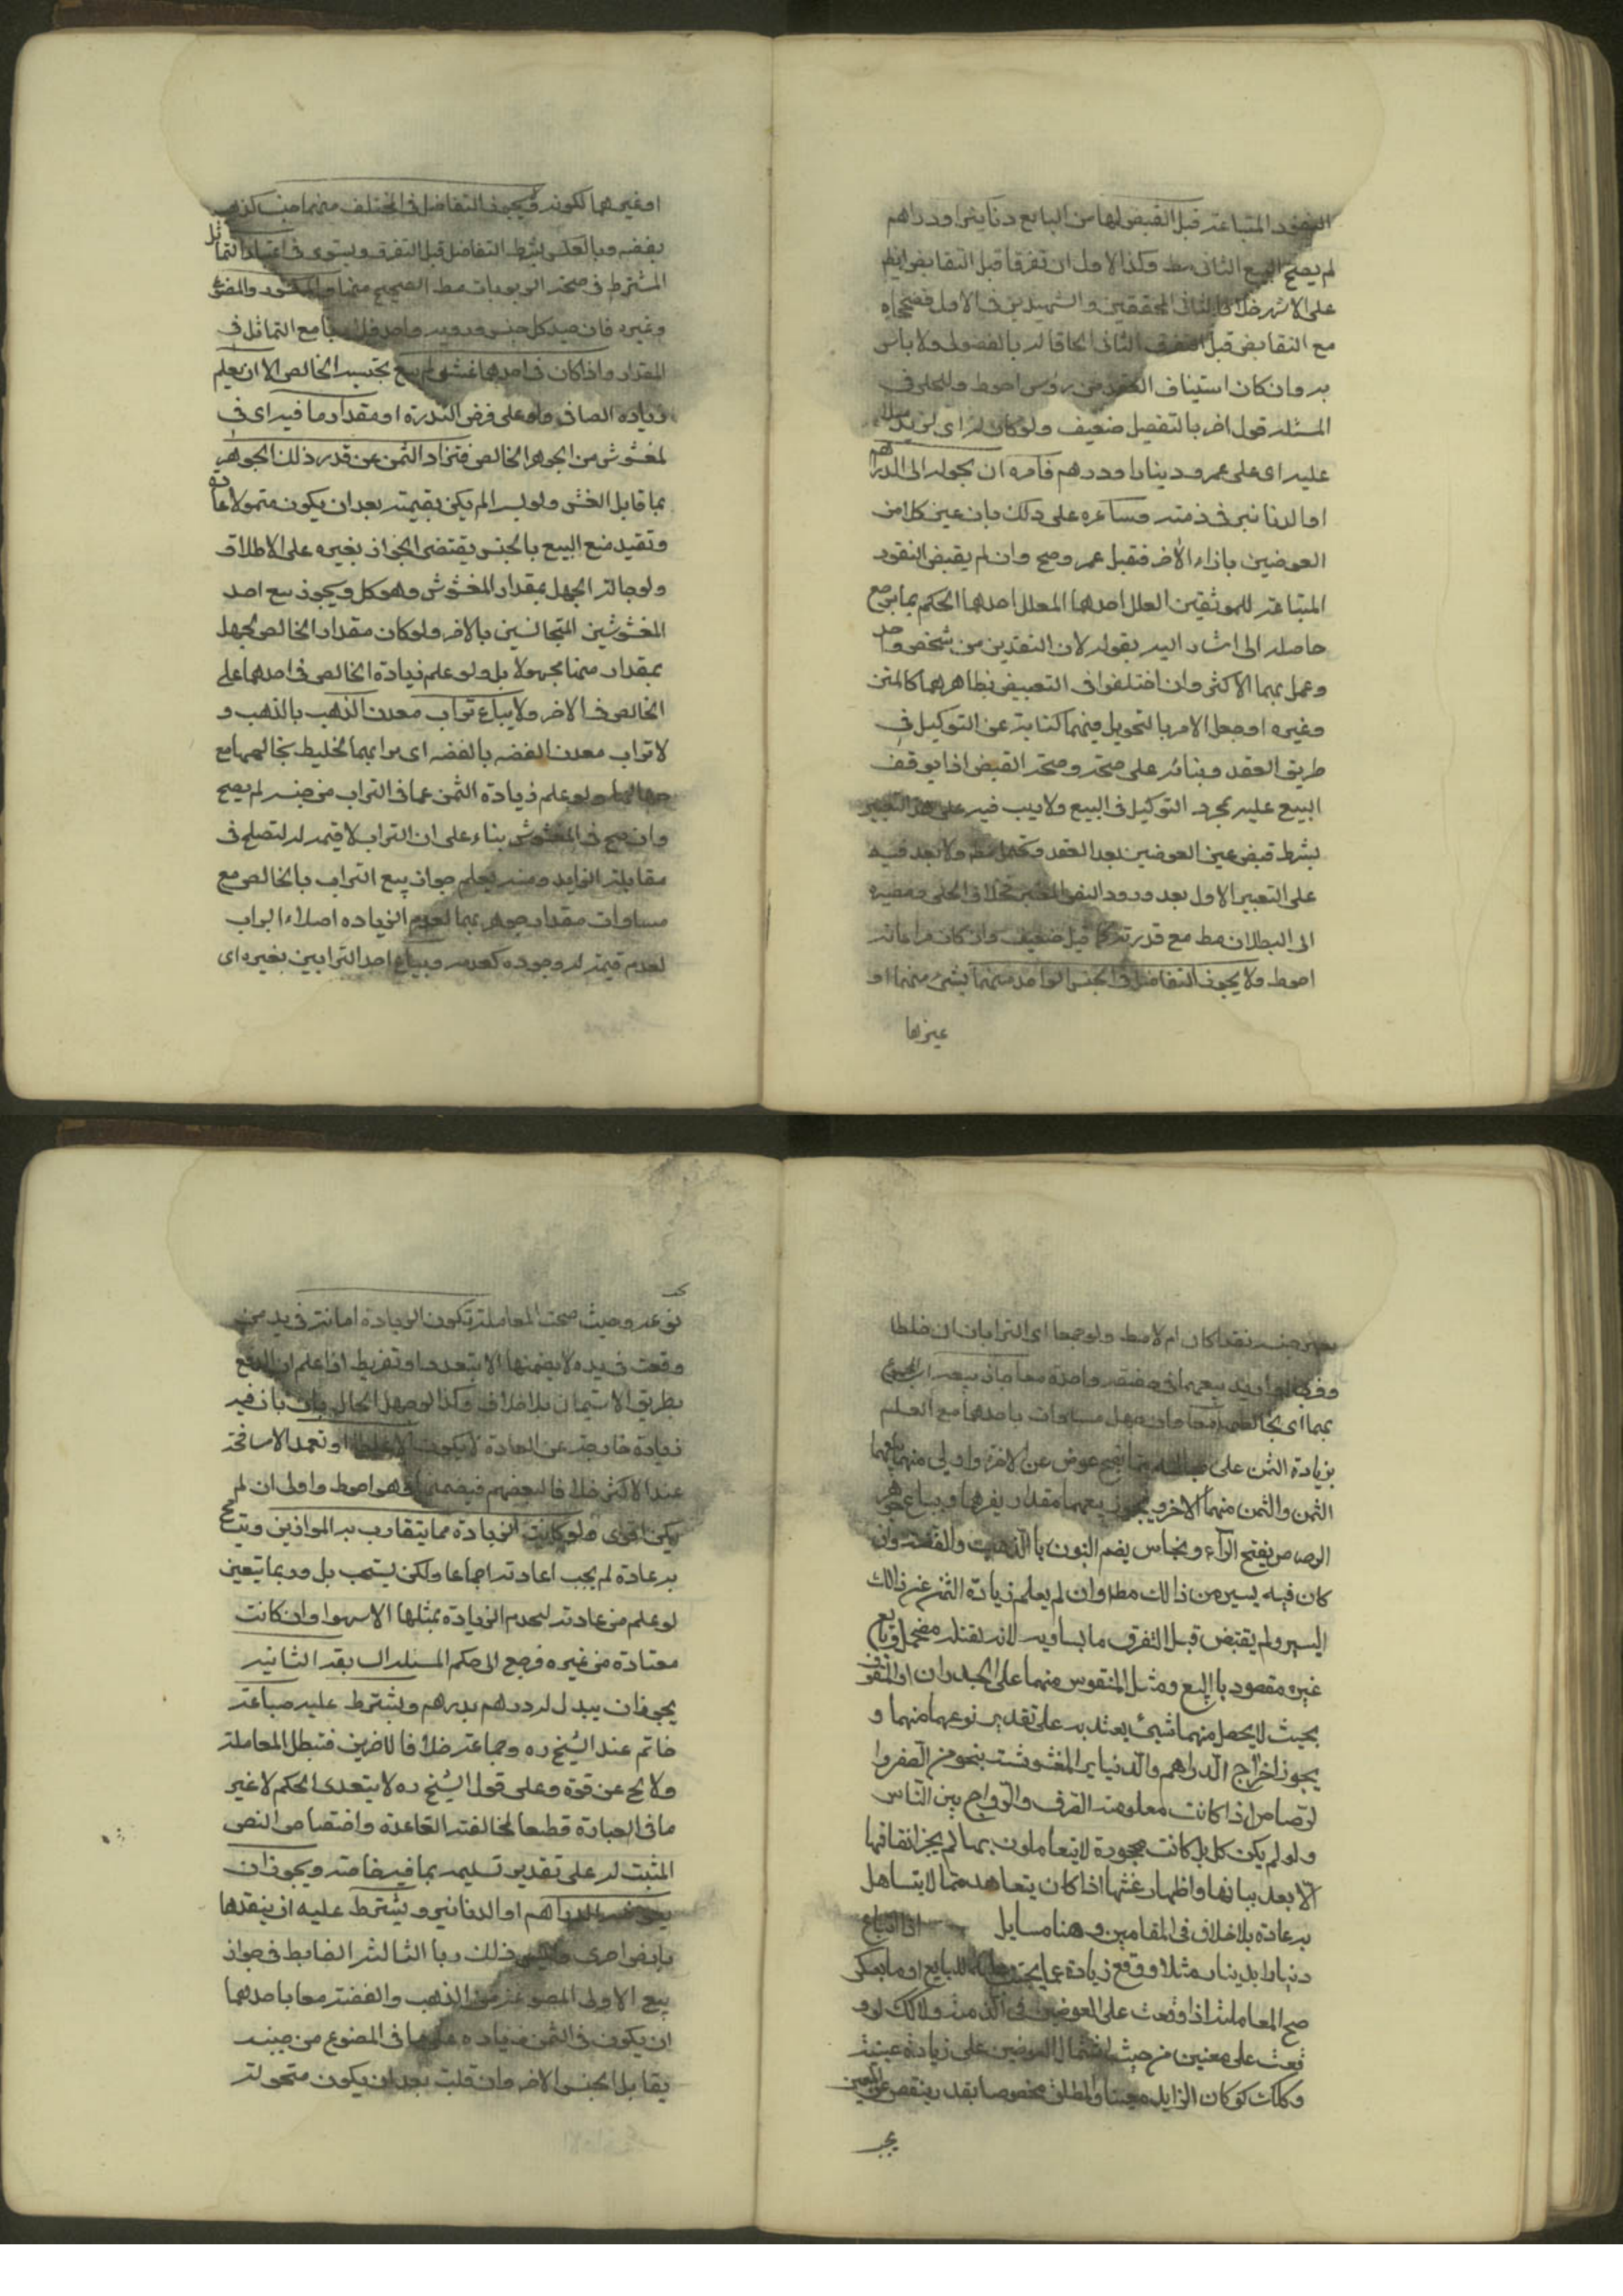 النقود المبتاعة قبل القبض لها من البايع دنانير او دراهم
لم يصح البيع الثانى مط وكذا الاول ان تفرقا قبل التقابض ايضا
على الاشهر خلافا للثانى المحققين والشهيدين فى الاول فصححاه
مع التقابض قبل التفرق الثانى الحاقا له بالفضولى ولا باس
به وان كان استيناف العقد من رؤس احوط وللحلى فى
المسئلة قول اخر بالتفصيل ضعيف ولو كان له اى لزيد مثلا
عليه اى على عمرو دينارا ودرهم فامره ان يحوله الى الدراهم
او الدنانير فى ذمته وساعره على ذلك بان عين كلا من
العوضين بازاء الاخر فقبل عمرو صح وان لم يقبض النقود
المبتاعة للموثقين المعلل احدهما الحكم بما يرجع
حاصله الى اشار اليه بقوله لان النقدين من شخص واحد
وعمل بهما الاكثر وان اختلفوا فى التعبير بظاهرهما كالمتن
وغيره او جعل الامر بالتحويل فيهما كناية عن التوكيل فى
طريق العقد وبنائه على صحته وصحة القبض اذا توقف
البيع عليه بمجرد التوكيل فى البيع ولا ريب فيه على هذا التعبير
بشرط قبض عين العوضين بعد العقد ولا بعد فيه
على التعبير الاول بعد ورود النص المعتبر خلافا للحلى ومصيره
الى البطلان مط مع قدرته كما قيل ضعيف وان كان مراعاته
احوط ولا يجوز التفاضل فى الجنس الواحد منهما بشئ منهما او
غيرهما
او غيرهما لكونه ويجوز التفاضل فى المختلف منهما جنسا كذهب
بفضة وبالعكس بشرط التقابض قبل التفرق ويستوى فى اعتبار التماثل
المشترط فى صحة الربويات مط الصحيح منهما والمكسور والمصوغ
وغيره فان جيد كل جنس ورديه واحد فلا ربا مع التماثل فى
المقدار واذا كان فى احدهما غش لم يبع بجنسه الخالص الا ان يعلم
زيادة الصافى ولو على فرض الندرة او مقدار ما فيه اى فى
لمغشوش من الجوهر الخالص فتزاد الثمن عن قدر ذلك الجوهر
بما قابل الغش ولو يسيرا لم يكن بقيمته بعد ان يكون متمولا عادة
وتقييد منع البيع بالجنس يقتضى الجواز بغيره على الاطلاق
ولو حالة الجهل بمقدار المغشوش وهو كل ويجوز بيع احد
المغشوشين المتجانسين بالاخر ولو كان مقدار الخالص لجهل
بمقدار منهما مجهولا بل ولو علم زيادة الخالص فى احدهما على
الخالص فى الاخر ولا يباع تراب معدن الذهب بالذهب و
لا تراب معدن الفضة بالفضة اى ترابهما الخليط بخالصهما مع
جهالتهما ولو علم زيادة الثمن عما فى التراب من جنسه لم يصح
وان صح فى المغشوش بناء على ان التراب لا قيمة له لتصلح فى
مقابلة الزايد ومنه يعلم جواز بيع التراب بالخالص مع
مساوات مقدار جوهر بهما لعدم الزيادة اصلا اذ التراب
لعدم قيمة له وجوده كعدمه ويباع احد الترابين بغيره اى
بغير جنسه نقدا كان ام لا مط ولو جمعا اى الترابان ان خلطا
واريد بيعهما فى صفقة واحدة معا جاز بيعه اى المجموع
بهما اى بخالصهما معا وان جهل مساوات باحدهما مع العلم
بزيادة الثمن على ما يصح عوض عن الاخر واولى منهما بيعهما
الثمن والثمن منهما الاخر ويجوز بيعهما مقدار بغيرها ويباع جوهر
الرصاص بفتح الرآء ونحاس بضم النون با الذهب والفضة وان
كان فيه يسير من ذالك مطا وان لم يعلم زيادة الثمن عن ذالك
اليسير ولم يقبض قبل التفرق ما يساويه لانه لقلته مضمحل وتابع
غير مقصود با البيع ومثل المنقوس منهما على الجدران او السقوف
بحيث لا يحصل منهما شئ يعتد به على تقدير نوعهما منهما و
يجوز اخراج الدراهم والدنيانير المغشوشة بنحو من الصفر وا
لرصاص اذا كانت معلومة الصرف والرواج بين الناس
ولو لم يكن كل بل كانت مجهورة لا يتعاملون بهما لم يجز انفاقها
الا بعد بيانها واظهار غشها اذا كان يتعاهد مما لا يتساهل
به عادة بلا خلاف فى المقامين وهنا مسايل اذا ابتاع
دينارا بدينار مثلا ووقع زيادة عما للبايع او ما بعكس
صح المعاملة اذا وقعت على العوضين فى الذمة وكذلك لو و
قعت على معنين من حيث اشتمال العوضين على زيادة عينية
وكذلك لو كان الزايد معينا والمطلق مخصوصا بقدر ينقص عن المعين
بحر
نوعه وحيث صحت المعاملة تكون الزيادة امانة فى يد من
وقعت فى يده لا يضمنها الا بتعد او تفريط اذا علم ان الدفع
بطريق الاستيمان بلا خلاف وكذا لو جهل الحال وان بان فيه
زيادة خارجة عن العادة لا يكون الا غلطا او تعمدا لا سامحة
عند الاكثر خلافا لبعضهم فيضمنها وهو احوط واولى ان لم
يكن اقوى ولو كانت الزيادة مما يتقارب به الموازين ويتسامح
به عادة لم يجب اعادته اجماعا ولكن يستحب بل وربما يتعين
لو علم من عادته لعدم الزيادة بمثلها الا سهوا وان كانت
معتادة من غيره فرجع الى حكم المسئلة السابقة الثانية
يجوز ان يبدل له درهم بدرهم ويشترط عليه صياغة
خاتم عند الشيخ ره وجماعة خلافا للاخرين فتبطل المعاملة
ولا يخ عن قوة وعلى قول الشيخ ره لا يتعدى الحكم لا غير
ما فى العبارة قطعا لمخالفته القاعدة واختصاص النص
المثبت له على تقدير تسليمه بما فيه خاصة ويجوز ان
الدراهم او الدنانير ويشترط عليه ان ينقدها
بارض اخرى وليس ذلك ربا الثالثة الضابط فى جواز
بيع الاوانى المصوغة من الذهب والفضة معا باحدهما
ان يكون فى الثمن زيادة على ما فى المصنوع من جنسه
يقابل الجنس الاخر وان قلت بعد ان يكون متمولة